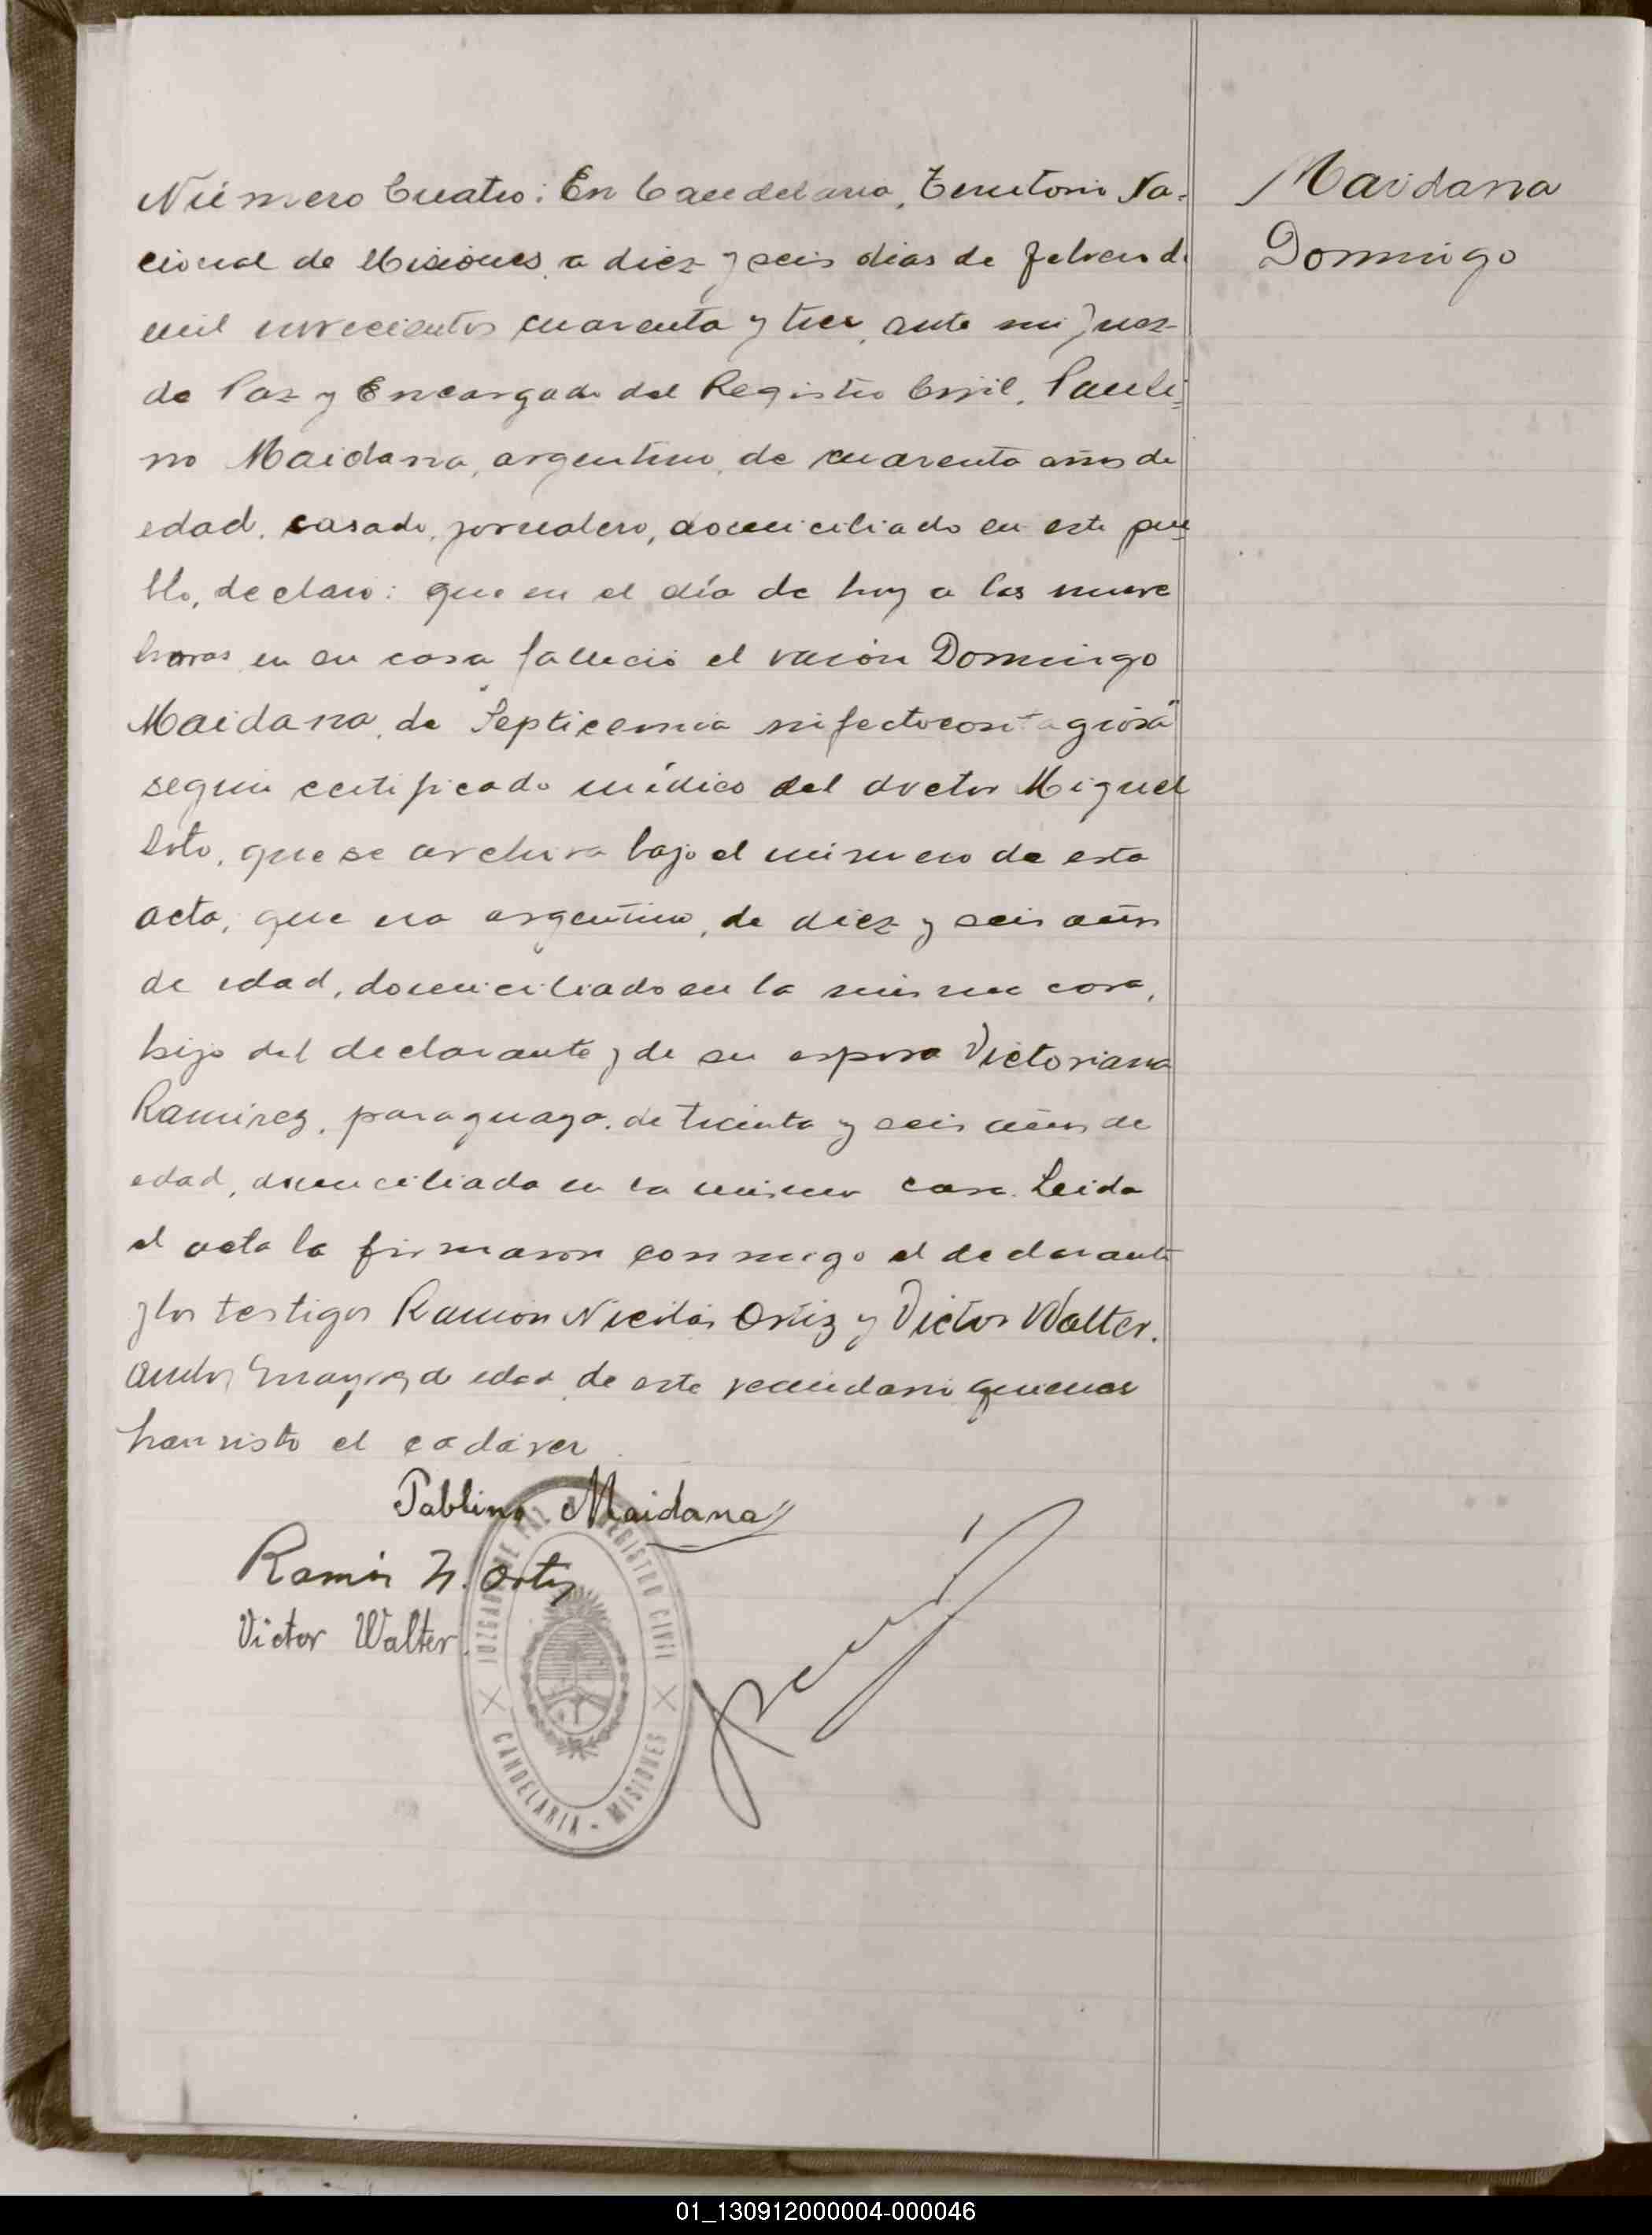 Número Cuatro: En Candelaria, Territorio Na-
cional de Misiones, a diez y seis dias de febrero de
mil novecientos cuarenta y tres, ante mi Juez
de Paz y Encargado del Registro Civil, Pauli-
no Maidana, argentino, de cuarenta años de
edad, casado, jornalero, domiciliado en este pue-
blo, declaro: que en el día de hoy a las nueve
horas en su casa falleció el varón Domingo
Maidana, de "Septicemia infectocontagiosa"
según certificado médico del doctor Miguel
Soto, que se archiva bajo el número de esta
acta, que era argentino, de diez y seis años
de edad, domiciliado en la misma casa,
hijo del declarante y de su esposa Victoriana
Ramirez, paraguaya, de treinta y seis años de
edad, domiciliada en la misma casa. Leida
el acta la firmaron conmigo el declarante
y los testigos Ramón Nicolás Ortiz y Victor Walter.
ambos mayores de edad de este vecindario quienes
han visto el cadáver
Pablino Maidana
Ramón N. Ortiz
Victor Walter.
JUZGADO DE PAZ REGISTRO CIVIL
CANDELARIA - MISIONES
Maidana
Domingo
01_130912000004-000046